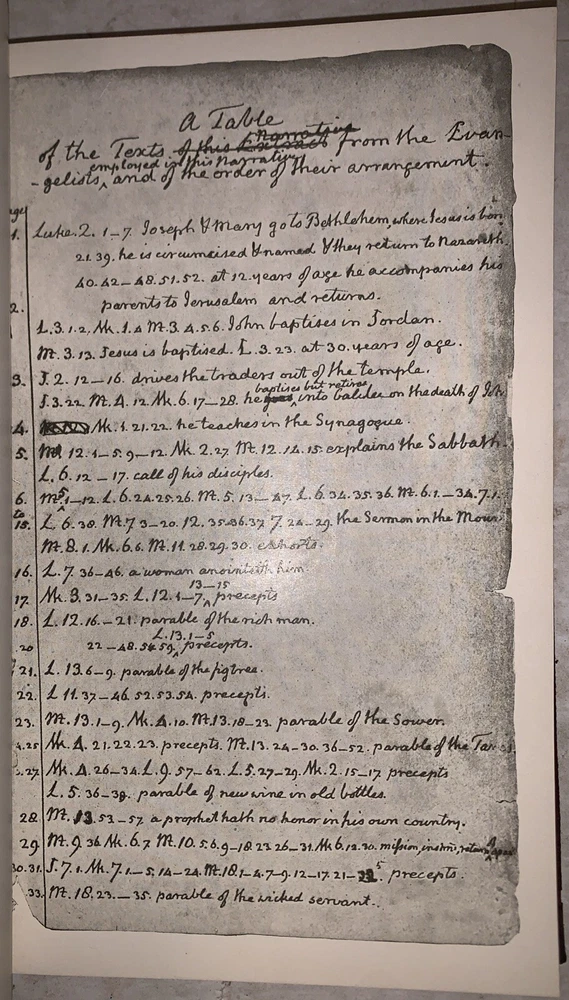 A Table
of the Texts of this Extract Narrative from the Evan-
-gelists, employed in this Narrative and of the order of their arrangement.
page
1. Luke.2. 1-7. Joseph & Mary go to Bethlehem, where Jesus is born
21.39. he is circumcised & named & they return to Nazareth.
40.42-48.51.52. at 12. years of age he accompanies his
parents to Jerusalem and returns.
2. L.3.1.2. Mk.1.4 M.3.4.5.6. John baptises in Jordan.
M.3.13. Jesus is baptised. L.3.23. at 30. years of age.
3. J.2.12-16. drives the traders out of the temple.
J.3.22. M.4.12. Mk.6.17-28. he goes baptises but retires into Galilee on the death of Joh
4. Mk.1.21.22. he teaches in the Synagogue.
5. M 12.1-5.9-12. Mk.2.27. M.12.14.15. explains the Sabbath.
L.6.12-17. call of his disciples.
6. M.5.1-12. L.6.24.25.26. M.5.13-47. L.6.34.35.36. M.6.1.-34.7.1.
to
15. L.6.38. M.7 3-20. 12.35.36.37 7.24-29. the Sermon in the Moun
M.8.1. Mk.6.6. M.11.28.29.30. exhorts.
16. L.7.36-46. a woman anointeth him.
17. Mk.3.31-35. L.12.1-7. 13-15 precepts
18. L.12.16.-21. parable of the rich man.
20 22-48.54.59. L.13.1-5 precepts.
21. L.13.6-9. parable of the figtree.
22. L 11.37-46.52.53.54. precepts.
23. M.13.1-9. Mk.4.10. M.13.18-23. parable of the Sower.
4.25 Mk.4.21.22.23. precepts. M.13.24-30.36-52. parable of the Tares
.27. Mk.4.26-34. L.9.57-62. L.5.27-29. Mk.2.15-17 precepts
L.5.36-38. parable of new wine in old bottles.
28. M.13.53-57. a prophet hath no honor in his own country.
29. M.9.36 Mk.6.7 M.10.5.6.9-18.23 26-31. Mk.6.12.30. mission, instrns, return
30.31. J.7.1. Mk.7.1.-5.14-24. M.18.1-4.7-9.12-17.21-35. precepts.
33. M.18.23.-35. parable of the wicked servant.